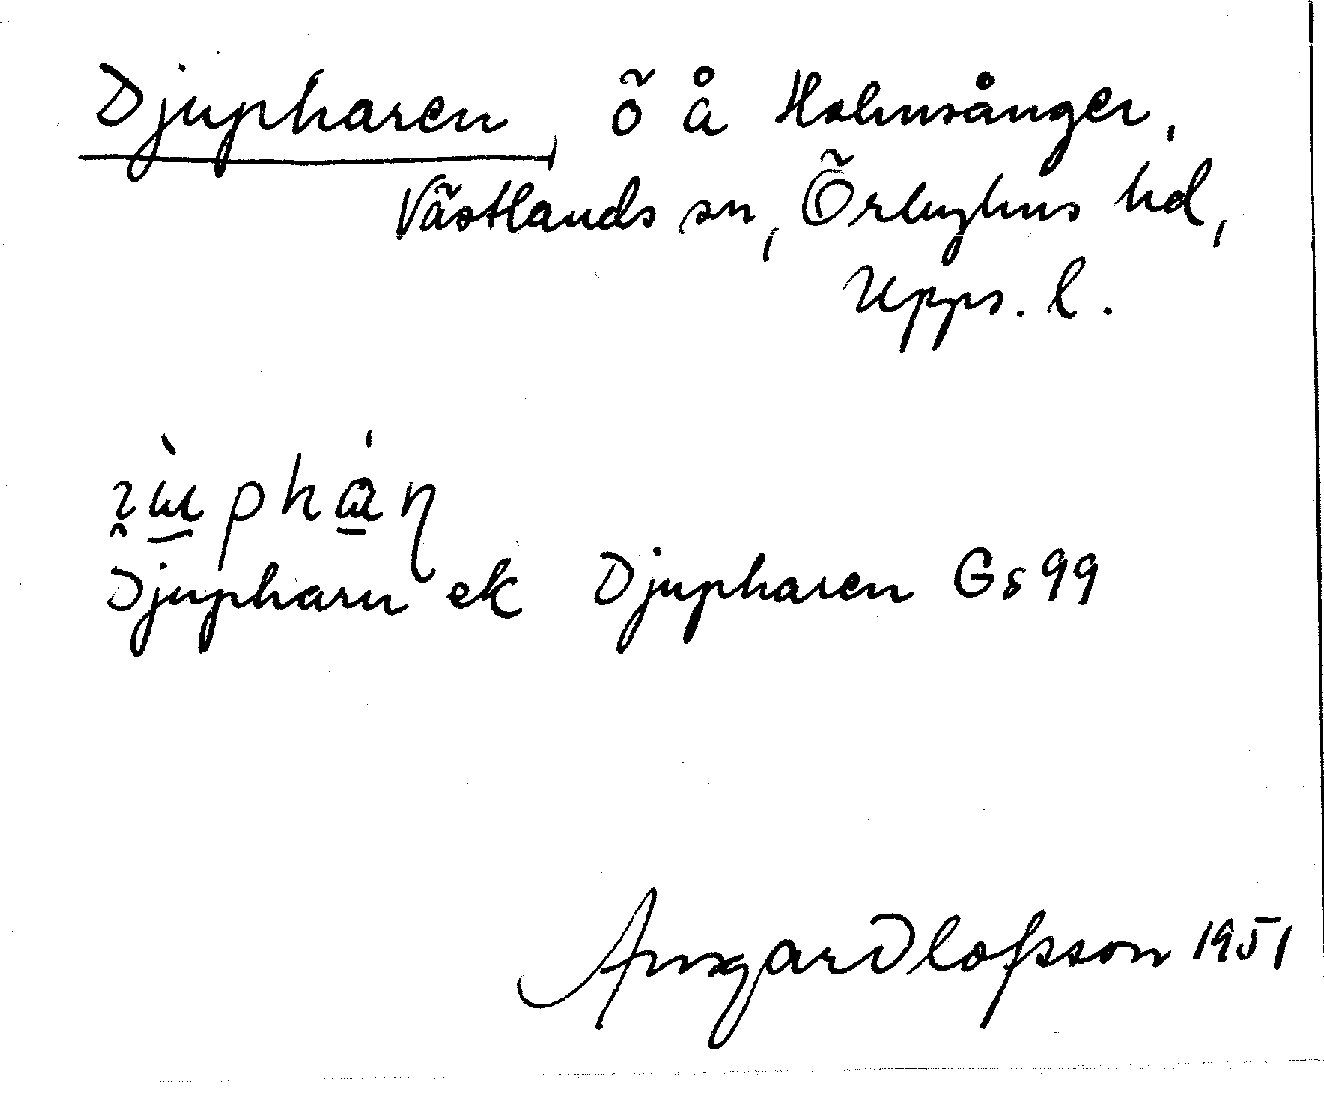 Djupharen, ö å Holmsånger,
Västlands sn, Örbyhus hd,
Upps. l.
Djupharn ek Djupharen Gs 99
Ansgar Olofsson 1951